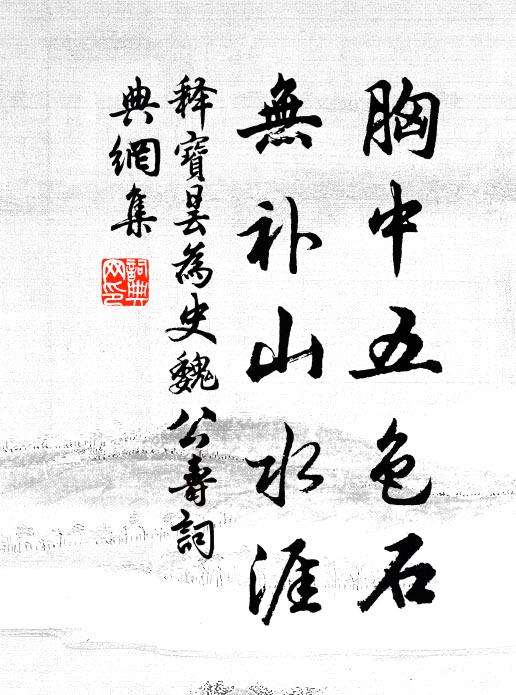 胸中五色石
無补山水涯
释寶昙為史魏公壽詞
典網集
詞典
网印